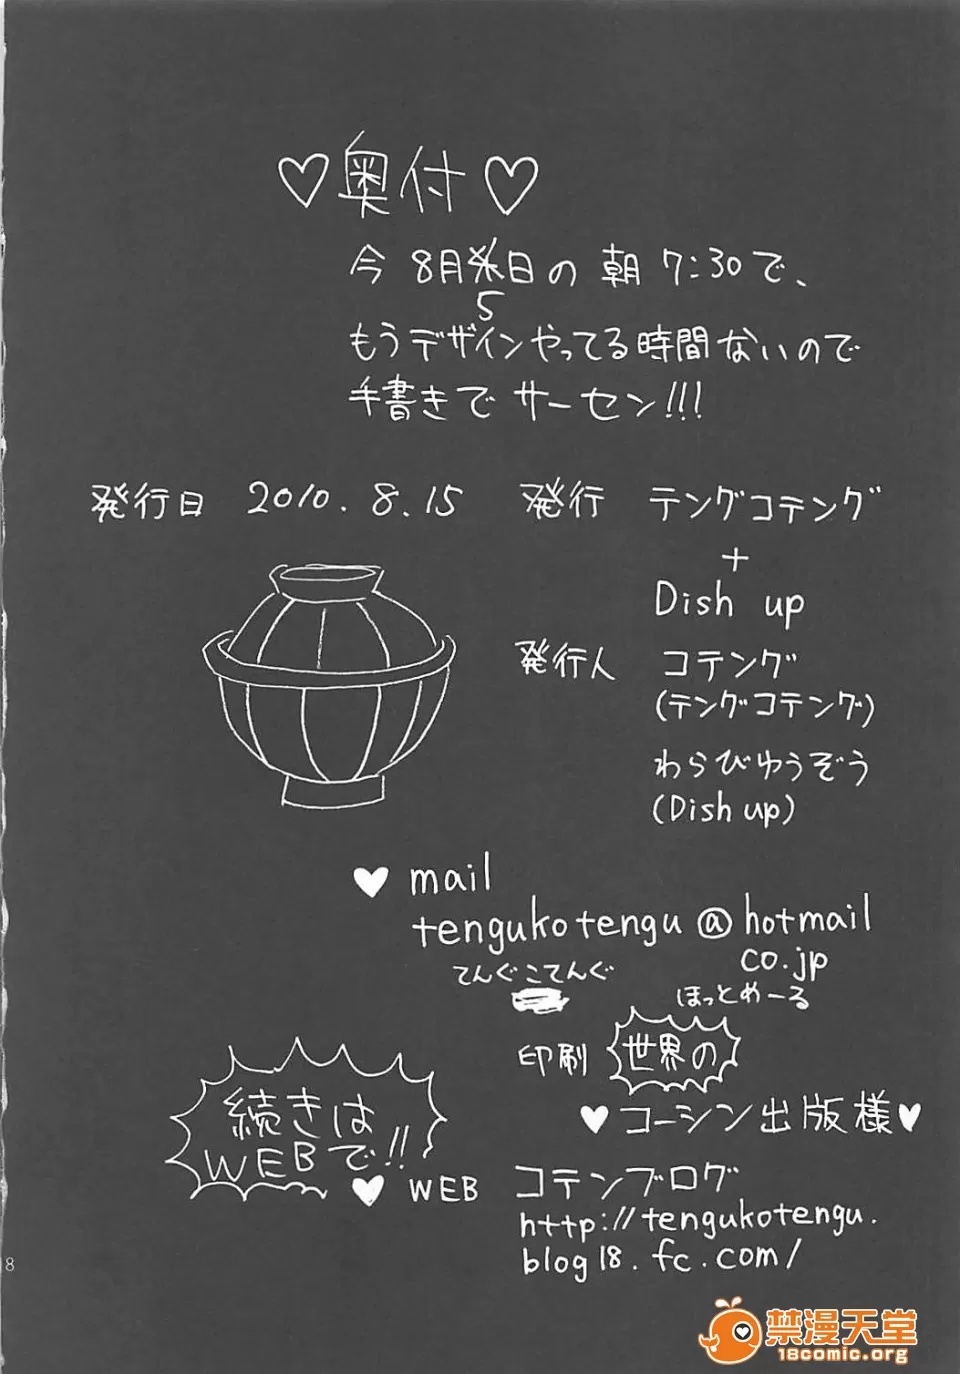 ♡奥付♡
今 8月5日の 朝 7:30で、
もうデザインやってる時間ないので
手書きで サーセン!!!
発行日 2010.8.15
発行 テングコテング
+
Dish up
発行人 コテング
(テングコテング)
わらびゆうぞう
(Dish up)
♥ mail
tengukotengu@hotmail
co.jp
てんぐこてんぐ
ほっとめーる
印刷 世界の
♥コーシン出版様♥
続きは
WEBで!!
♥ WEB コテンブログ
http://tengukotengu.
blog18.fc.com/
18
禁漫天堂
18comic.org